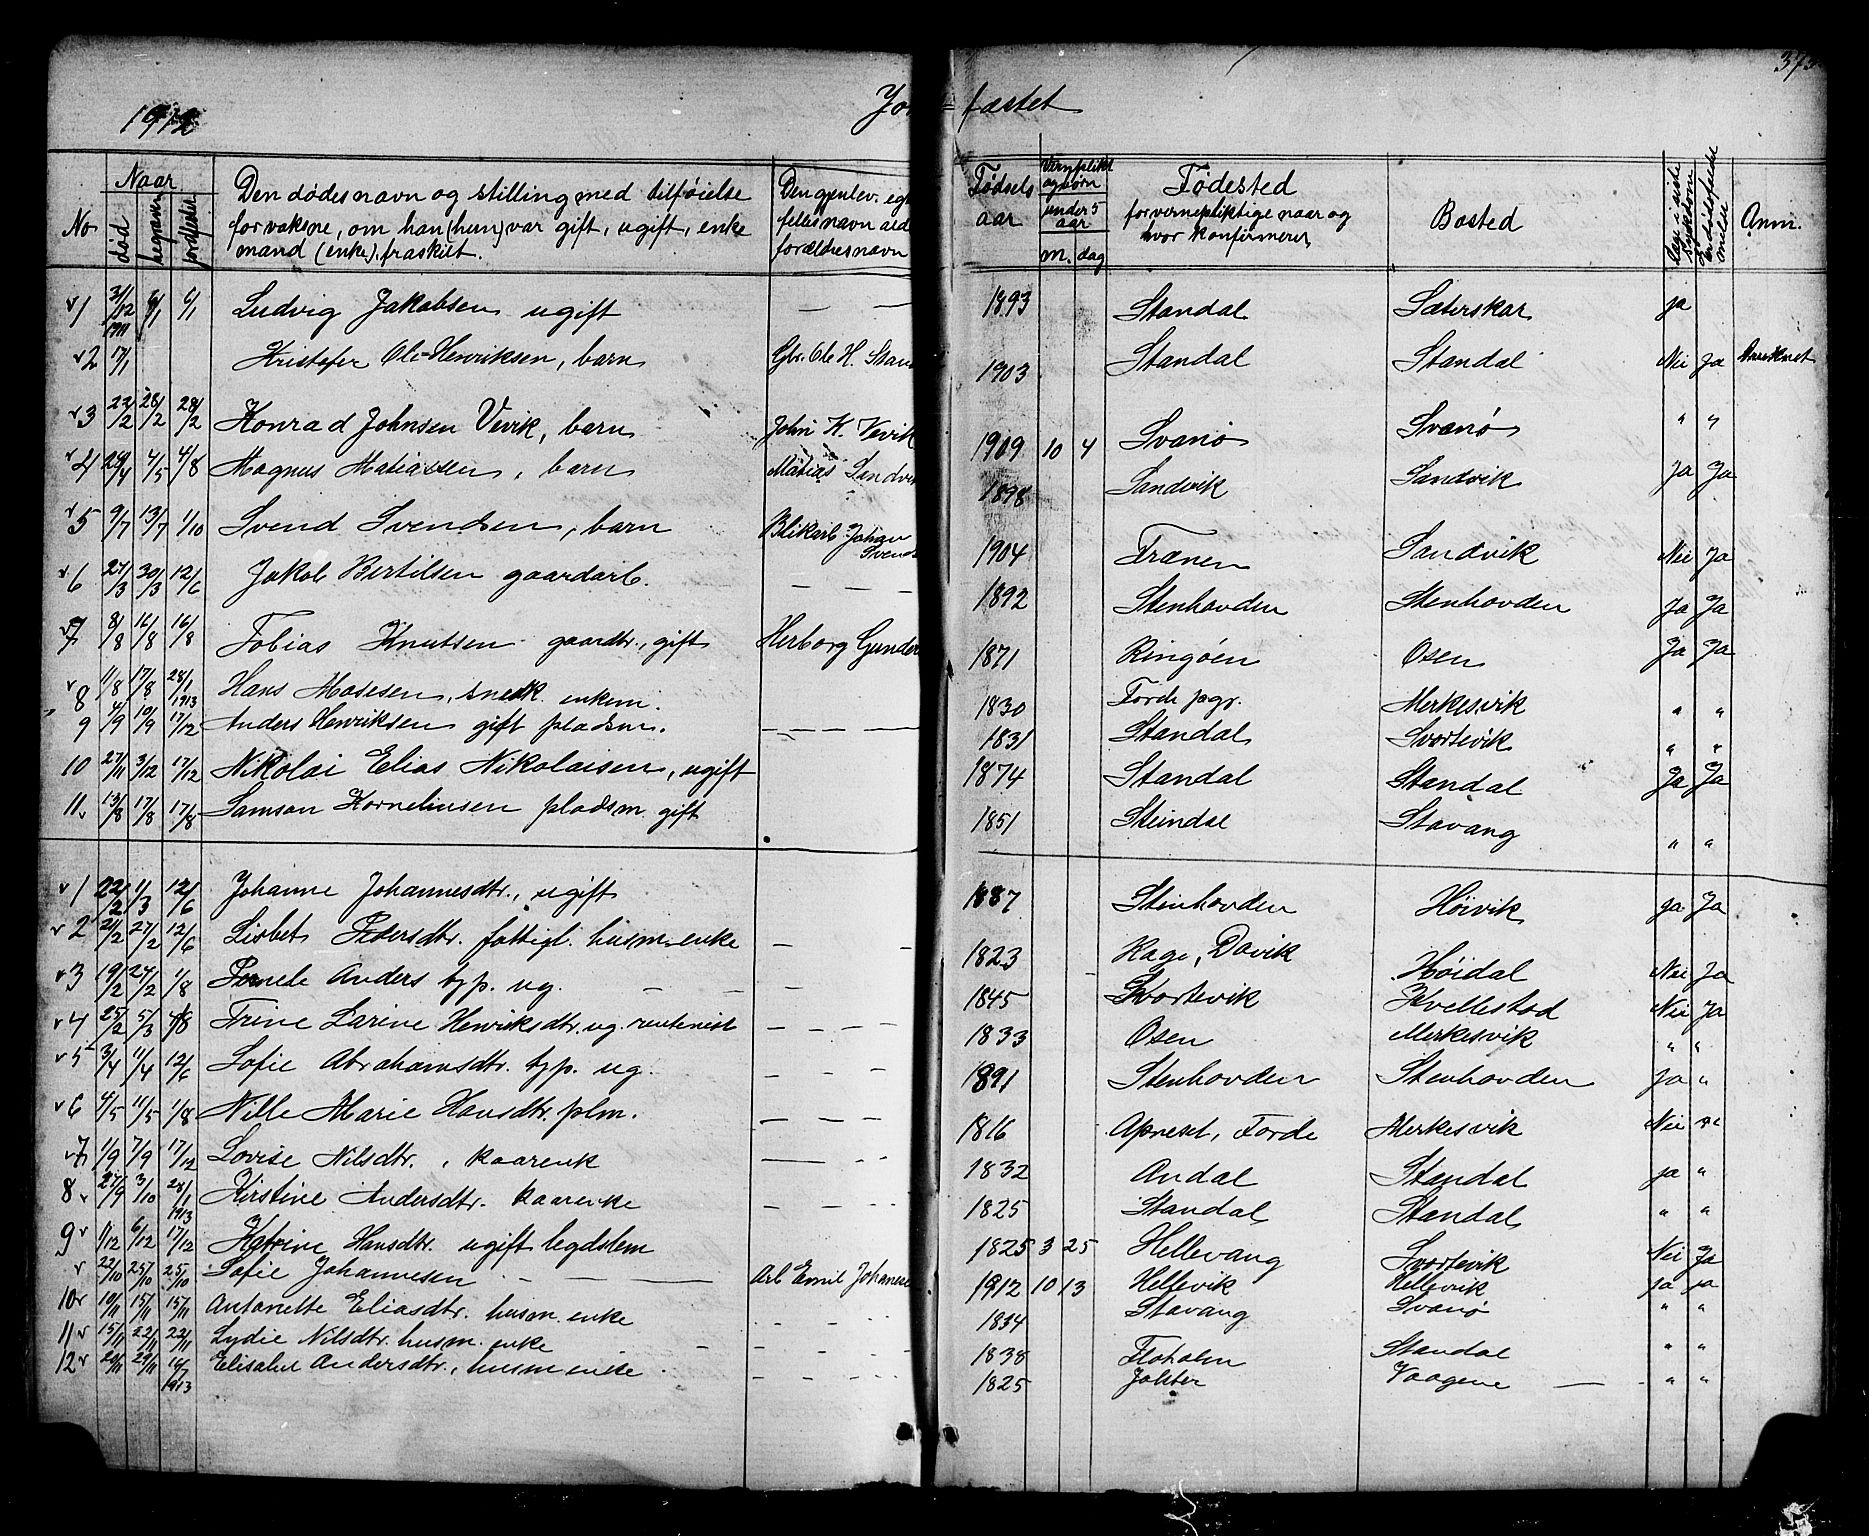 373
1912
Jordfæstet
No.
Naar
død
begravet
jordfæstet
Den dødes navn og stilling med tilføielse
for voksne, om han (hun) var gift, ugift, enke
mand (enke), fraskilt.
Den gjenlev. egte
felles navn
forældres navn
Fødsels
aar
Vernplikt
og børn
under 5
aar
M. dag
Fødested
for vernepliktige naar og
hvor konfirmeret
Bosted
Anm.
1 31/12 1911 6/1 6/1 Ludvig Jakobsen ugift — — 1893 Standal Sæterskar ja
2 17/1 Kristofer Ole Henriksen, barn Gbr. Ole H. Stand 1903 Standal Standal Nei Ja Druknet
3 22/2 28/2 28/2 Konrad Johnsen Vevik, barn John K. Vevik 1909 10 4 Svanø Svanø " "
4 24/4 4/5 4/8 Magnus Matiassen, barn Matias Sandvik 1898 Sandvik Sandvik Ja Ja
5 9/7 13/7 1/10 Svend Svendsen, barn Blikarb. Johan Svends 1904 Frænen Sandvik Nei Ja
6 27/3 30/3 12/6 Jakob Bertilsen gaardarb. — — — 1892 Stenhovden Stenhovden Ja Ja
7 8/8 16/8 16/8 Tobias Knutsen gaardbr., gift Herborg Gunder 1871 Ringøen Osen Ja Ja
8 11/8 17/8 28/1 1913 Hans Mosesen, snedk. enkem. 1830 Førde pgr. Merkesvik " "
9 4/9 10/9 17/12 Anders Henriksen gift pladsm. — — — — 1831 Standal Svortevik " "
10 27/11 3/12 17/12 Nikolai Elias Nikolaisen, ugift 1874 Standal Standal Ja Ja
11 13/8 17/8 17/8 Samson Kornelinsen pladsm. gift 1851 Steindal Stavang " "
1 22/2 1/3 12/6 Johanne Johannesdtr., ugift 1887 Stenhovden Høivik ja Ja
2 21/2 27/2 12/6 Lisbet Pedersdtr. fattigl. husm. enke — - 1823 Hage, Davik Høidal Nei Ja
3 19/2 24/2 1/8 Anders typ. ug. — — — 1845 Svortevik Kvellestad Nei Ja
4 25/2 5/3 4/8 Trine Larine Henriksdtr. ug. rentenist — — — — 1833 Osen Merkesvik " "
5 3/4 11/4 12/6 Sofie Abrahamsdtr. typ. ug. — — — — 1891 Stenhovden Stenhovden ja "
6 4/5 11/5 1/8 Nille Marie Hansdtr. plm. — — — — 1816 Apneset, Førde Merkesvik Nei "
7 1/9 7/9 17/12 Lovise Nilsdtr., kaarenk — — — 1832 Andal Standal ja "
8 27/9 3/10 28/1 1913 Kirstine Andersdtr. kaarenke — — — — 1825 Standal Standal " "
9 1/12 6/12 17/12 Katrine Hansdtr. ugift legdslem 1825 3 25 Hellevang Svortevik Nei Ja
22/10 25/10 25/10 Sofie Johannesen — — Arb Emil Johannes 1912 10 13 Hellevik Hellevik ja ja
10 10/11 15/11 15/11 Antonette Eliasdtr. husm. enke 1834 Stavang Svanø " "
11 15/11 22/11 22/11 Lydie Nilsdtr. husm. enke 1838 Floholm Standal " "
12 24/11 29/11 16/7 1913 Elisabet Andersdtr., husm enke 1825 Jølster Vaagene — " "